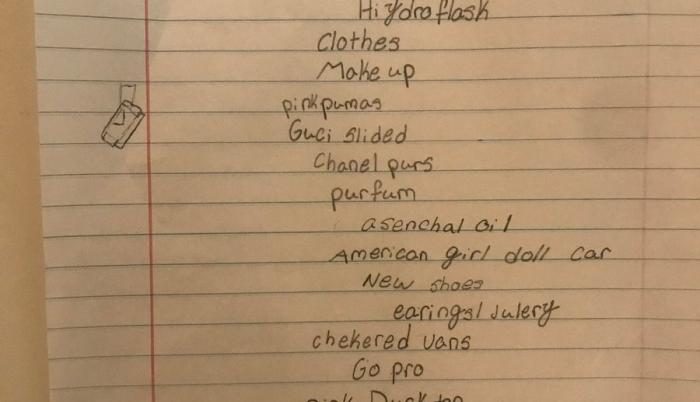 Hiydroflask
Clothes
Make up
pinkpumas
Guci slided
Chanel purs
purfum
asenchal oil
American girl doll car
New shoes
earings/julery
chekered vans
Go pro
pink Duck